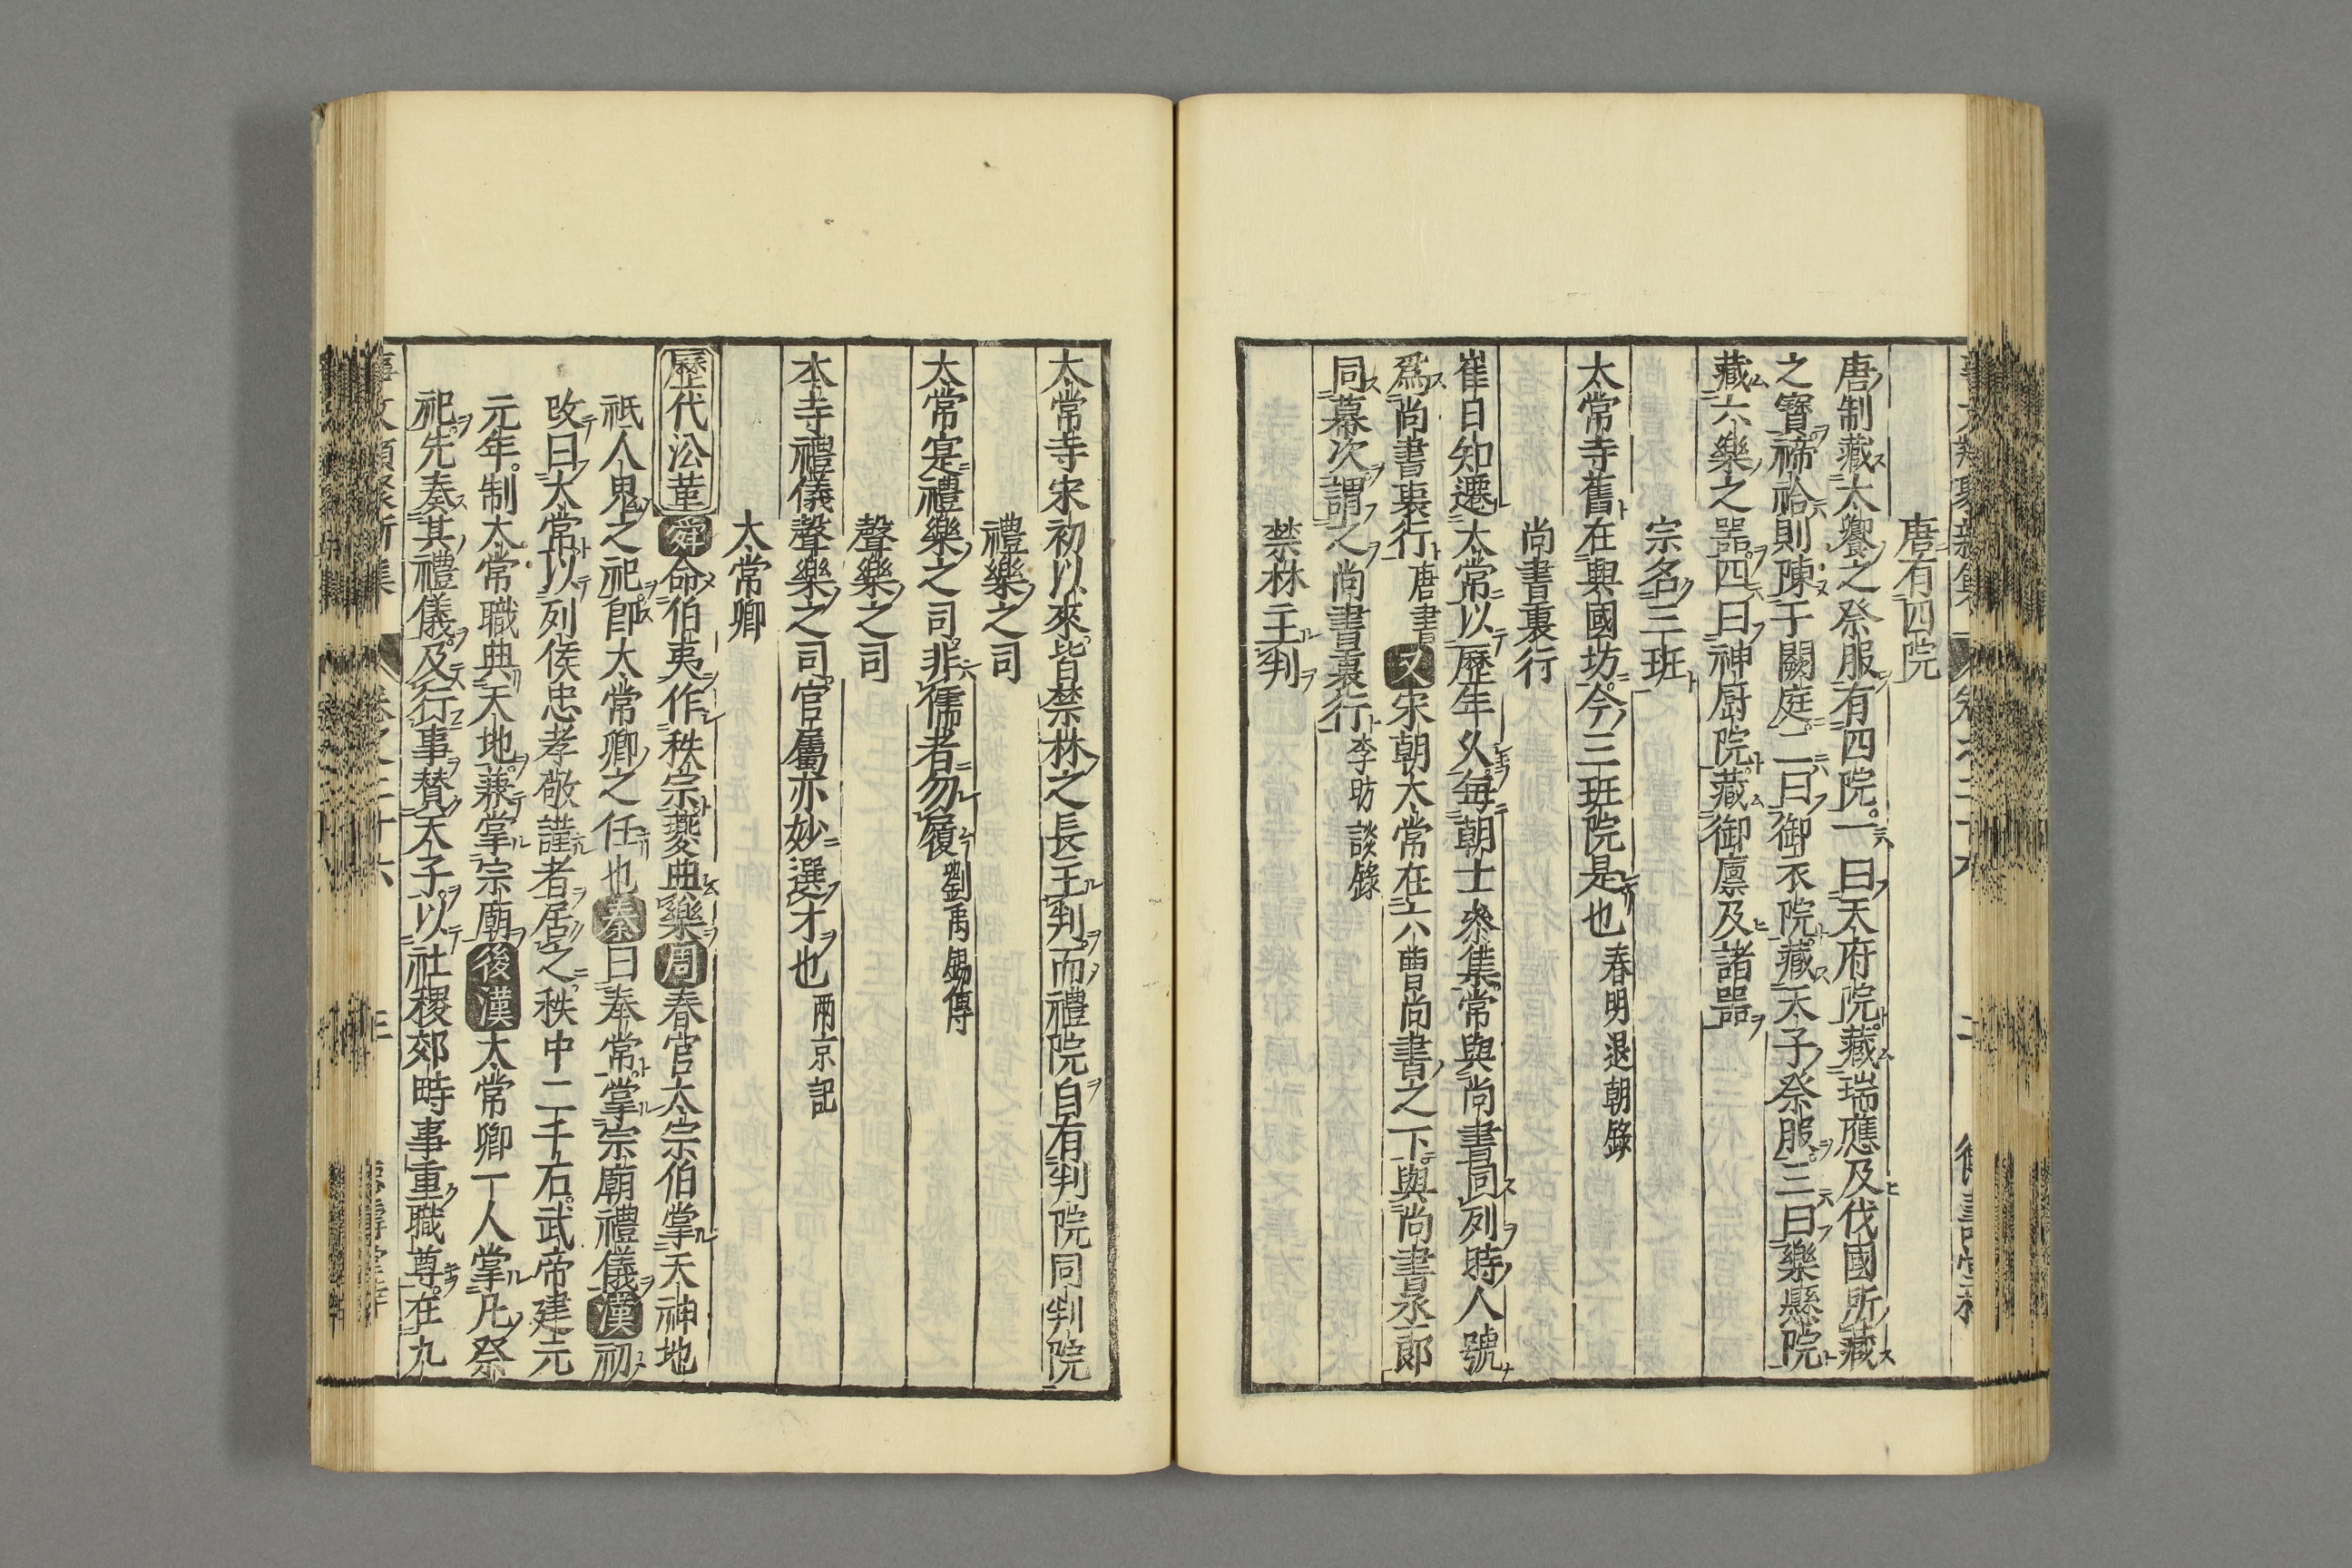 唐有四院
唐制藏太饗之祭服有四院一曰天府院藏瑞應及伐國所藏
之寶禘祫則陳于闕庭二曰御衣院藏天子祭服三曰樂懸院
藏六樂之噐四曰神厨院藏御廪及諸噐
宗名三班
太常寺舊在興國坊今三班院是也春明退朝錄
尚書裏行
崔日知遷太常以歷年久每朝士叅集常與尚書同列時人號
爲尚書裏行唐書又宋朝太常在六曹尚書之下與尚書丞郎
同幕次謂之尚書裏行李昉談錄
禁林主判
太常寺宋初以來皆禁林之長主判而禮院自有判院同判院
禮樂之司
太常寔禮樂之司非儒者勿履劉禹錫傳
聲樂之司
本寺禮儀聲樂之司官屬亦妙選才也兩京記
太常卿
歷代沿革舜命伯夷作秩宗夔典樂周春官太宗伯掌天神地
祇人鬼之祀卽太常卿之任也秦曰奉常掌宗廟禮儀漢初
改曰太常以列侯忠孝敬謹者居之秩中二千石武帝建元
元年制太常職典天地兼掌宗廟後漢太常卿一人掌凡祭
祀先奏其禮儀及行事贊天子以社稷郊畤事重職尊在九